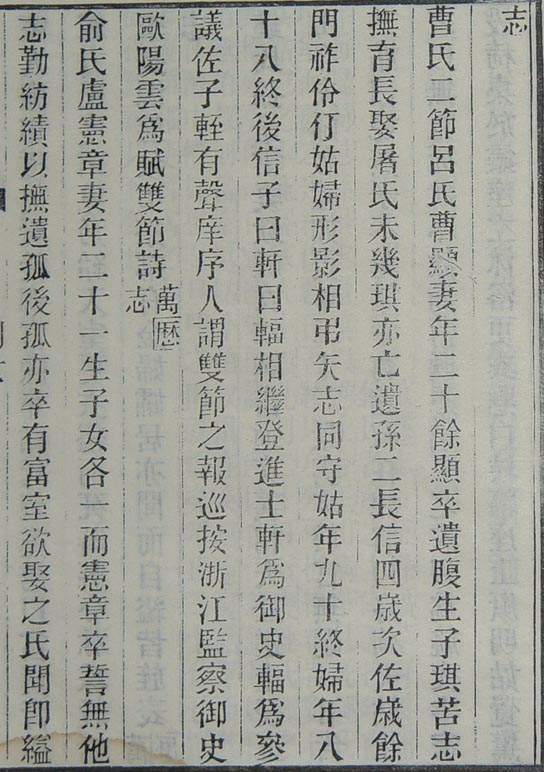 志
曹氏二節呂氏曹顯妻年二十餘顯卒遺腹生子琪苦志
撫育長娶屠氏未幾琪亦亡遺孫二長信四歲次佐歲餘
門祚伶仃姑婦形影相弔矢志同守姑年九十終婦年八
十八終後信子曰軒曰輻相繼登進士軒爲御史輻爲參
議佐子輊有聲庠序人謂雙節之報巡按浙江監察御史
歐陽雲爲賦雙節詩萬曆志
俞氏盧憲章妻年二十一生子女各一而憲章卒誓無他
志勤紡績以撫遺孤後孤亦卒有富室欲娶之氏聞卽縊